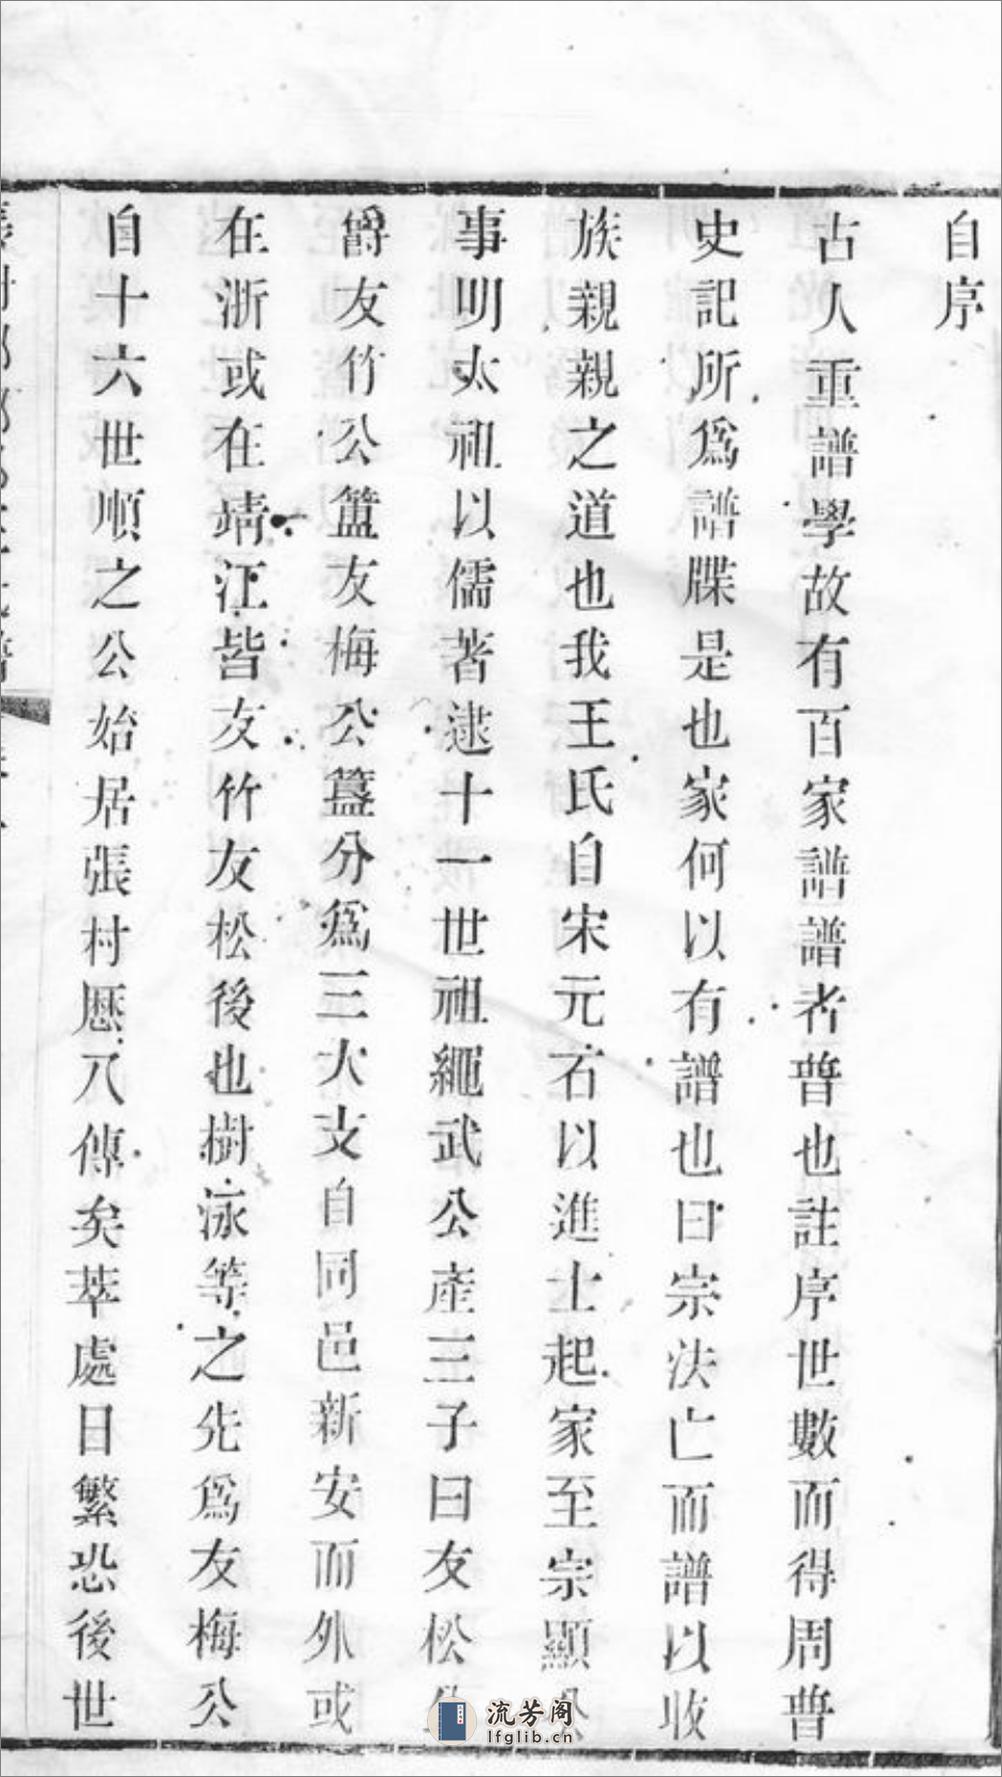 自序
古人重譜學故有百家譜譜者普也註序世數而得周普
史記所爲譜牒是也家何以有譜也曰宗法亡而譜以收
族親親之道也我王氏自宋元石以進士起家至宗顯公
事明太祖以儒著逮十一世祖繩武公產三子曰友松
爵友竹公簠友梅公簋分爲三大支自同邑新安而外或
在浙或在靖江皆友竹友松後也樹泳等之先爲友梅公
自十六世順之公始居張村歷八傳矣萃處日繁恐後世
流芳阁
lfglib.cn